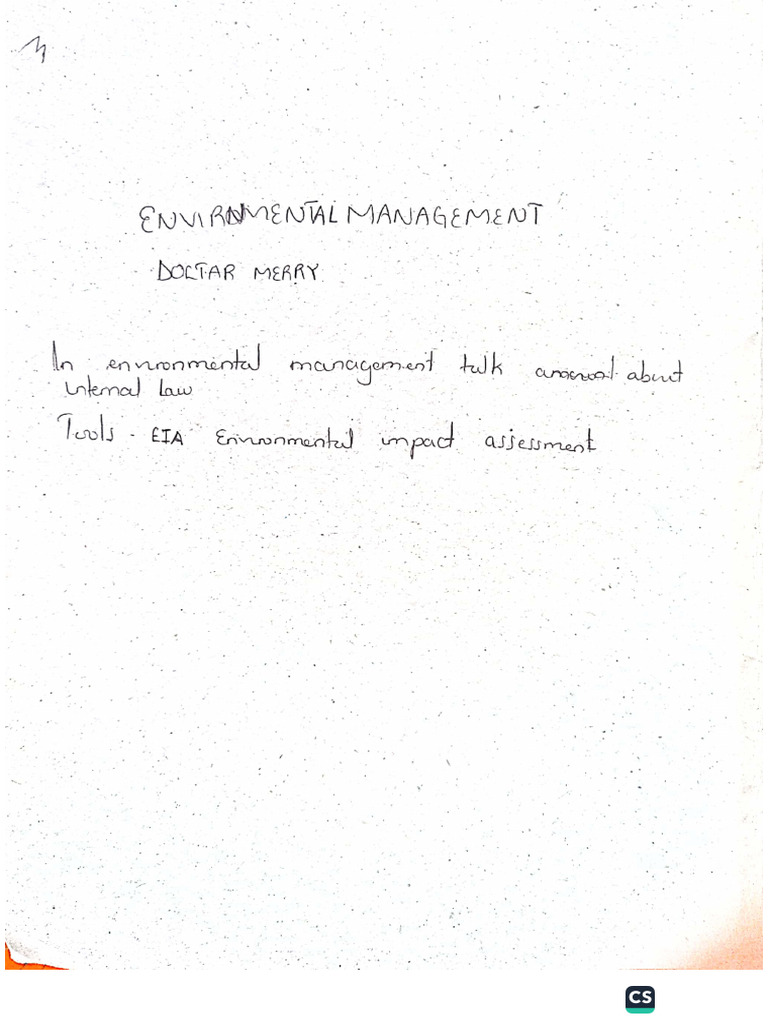 ENVIRNMENTAL MANAGEMENT
DOCTAR MERRY
In environmental management talk about
internal Law
Tools - EIA Environmental impact assessment
CS